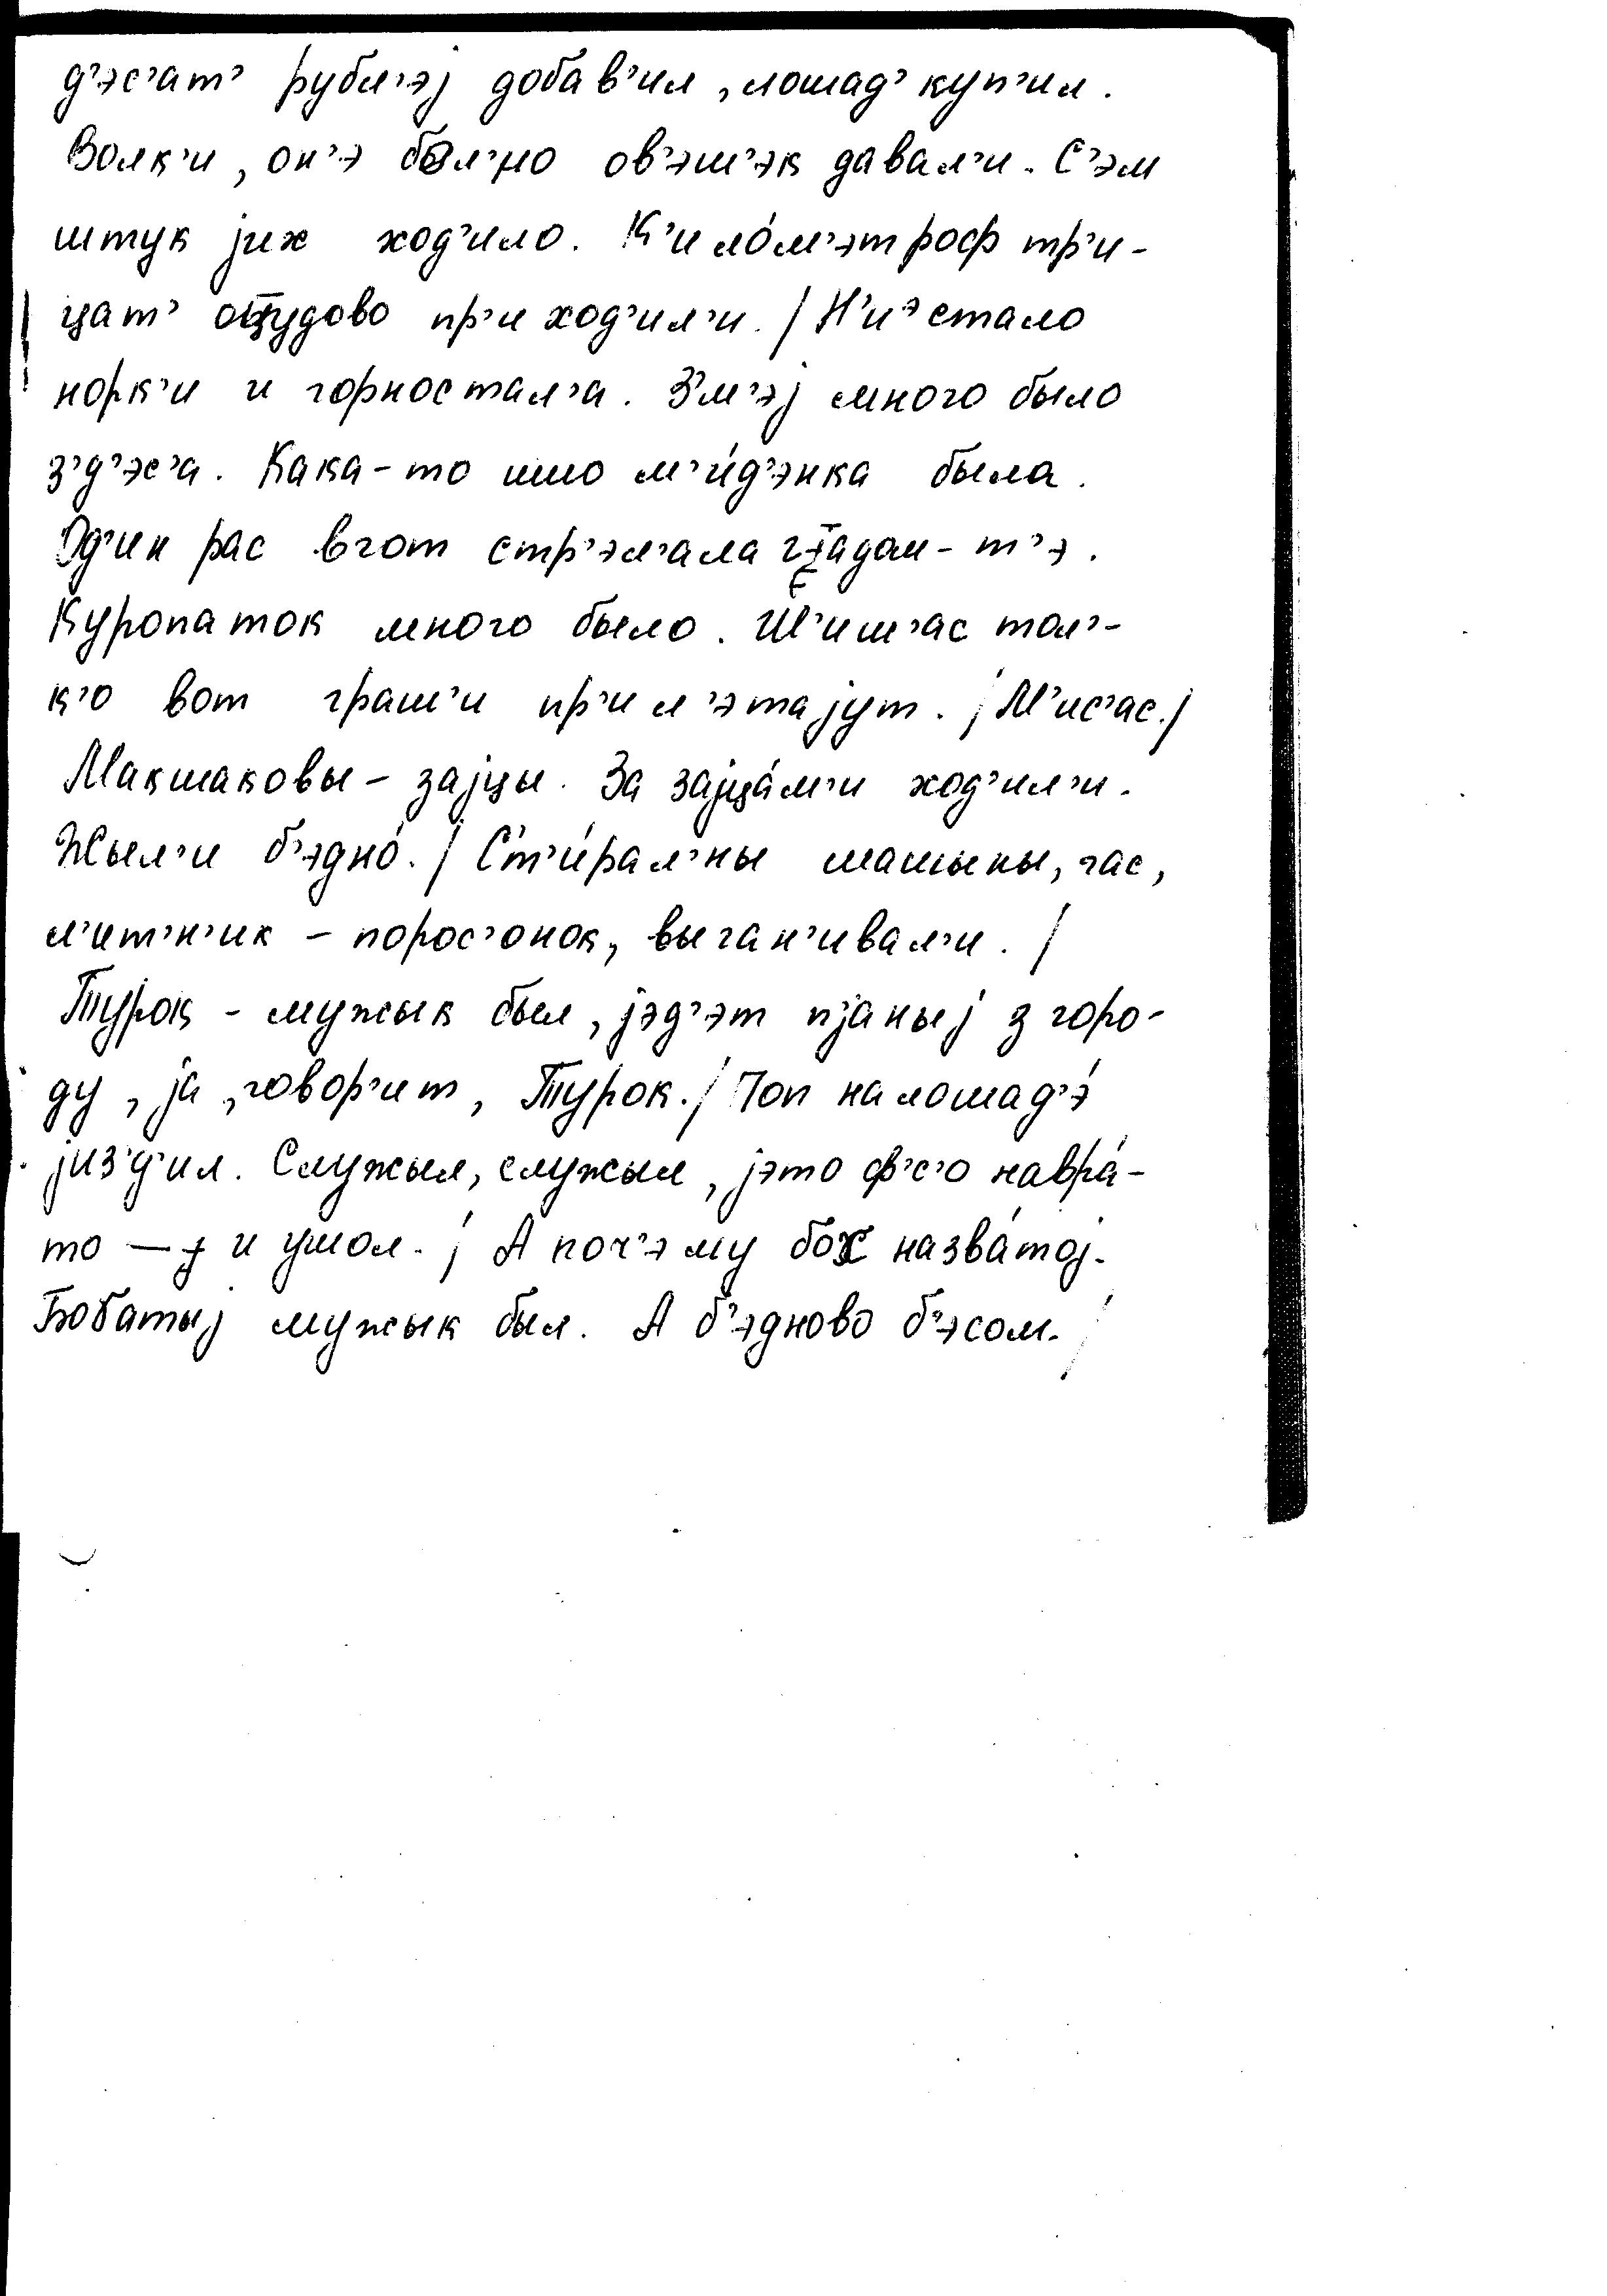 д’эс’ат’ рубл’эј добав’ил, лошад’ куп’ил.
Волк’и, он’э бол’но ов’эш’эк давал’и. С’эм
штук јих ход’ило. К’ило́м’этроф тр’и-
цат’ оцудово пр’иход’ил’и. / Н’иᵊ стало
норк’и и горностал’а. З’м’эј много было
з’д’эс’а. Кака-то ишо м’и́д’энка была.
Од’ин рас в гот стр’эл’ала гадам-т’э.
Куропаток много было. Ш’иш’ас тол’-
к’о вот граш’и пр’ил’этајут. / М’ис’ас. /
Макшаковы – зајцы. За зајца́м’и ход’ил’и.
Жыл’и б’эдно́. / С’т’и́рал’ны машыны, гас,
л’ит’н’ик – порос’онок, выган’ивал’и. /
Турок – мужык был, јэд’эт пјаныј з горо-
ду, ја, говор’ит, Турок. / Поп на лошад’э́
јиз’д’ил. Служыл, служыл, јэто ф’с’о навра́-
то — и ушол. / А поч’эму бох назва́тој.
Бобатыј мужык был. А б’эдново б’эсом. /